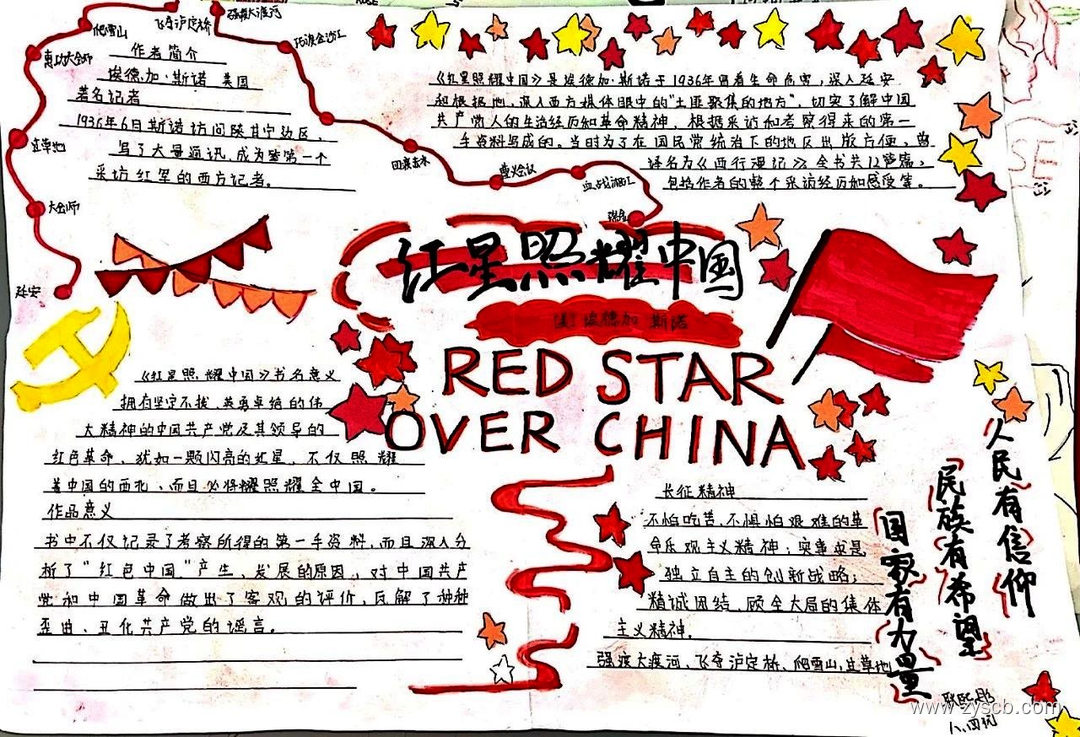 强渡大渡河
飞夺泸定桥
爬雪山
巧渡金沙江
过草地
大会师
延安
四渡赤水
遵义会议
血战湘江
瑞金
作者简介
埃德加·斯诺 美国
著名记者
1936年6月斯诺访问陕甘宁边区,
写了大量通讯,成为第一个
采访红军的西方记者。
《红星照耀中国》是埃德加·斯诺于1936年冒着生命危害,深入延安
和根据地,深入西方媒体眼中的“土匪聚集的地方”,切实了解中国
共产党人的生活经历和革命精神,根据采访和考察得来的第一
手资料写成的。当时为了在国民党统治下的地区出版方便,曾
译名为《西行漫记》全书共12篇,
包括作者的整个采访经历和感受等。
红星照耀中国
[美]埃德加 斯诺
RED STAR
OVER CHINA
《红星照耀中国》书名意义
拥有坚定不拔、英勇卓绝的伟
大精神的中国共产党及其领导的
红色革命,犹如一颗闪亮的红星,不仅照耀
着中国的西北,而且必将耀照耀全中国。
作品意义
书中不仅记录了考察所得的第一手资料,而且深入分
析了“红色中国”产生、发展的原因,对中国共产
党和中国革命做出了客观的评价,瓦解了种种
歪曲、丑化共产党的谣言。
长征精神
不怕吃苦、不惧怕艰难的革
命乐观主义精神;实事求是
独立自主的创新战略;
精诚团结、顾全大局的集体
主义精神.
强渡大渡河、飞夺泸定桥、爬雪山、过草地
人民有信仰
民族有希望
国家有力量
www.zyscb.com